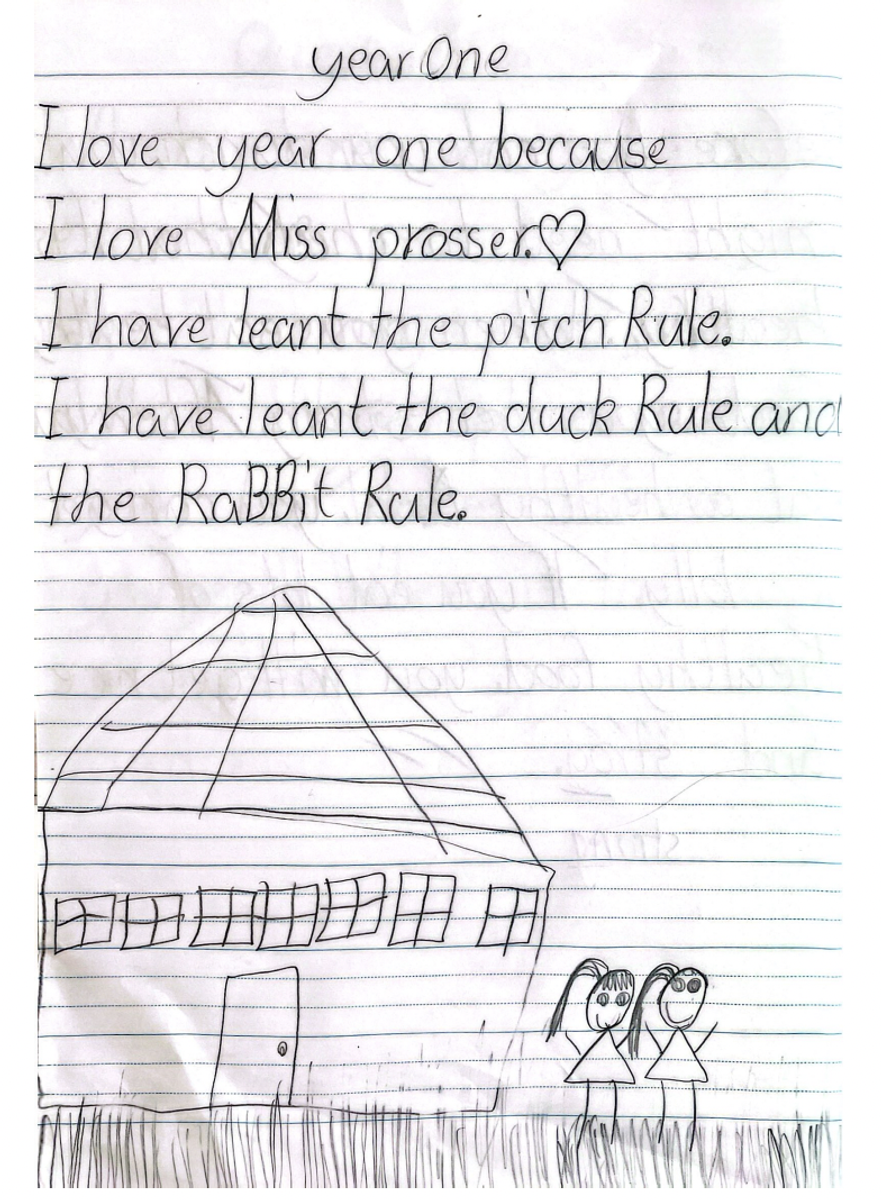 year One
I love year one because
I love Miss prosser.♡
I have leant the pitch Rule.
I have leant the duck Rule and
the RaBBit Rule.